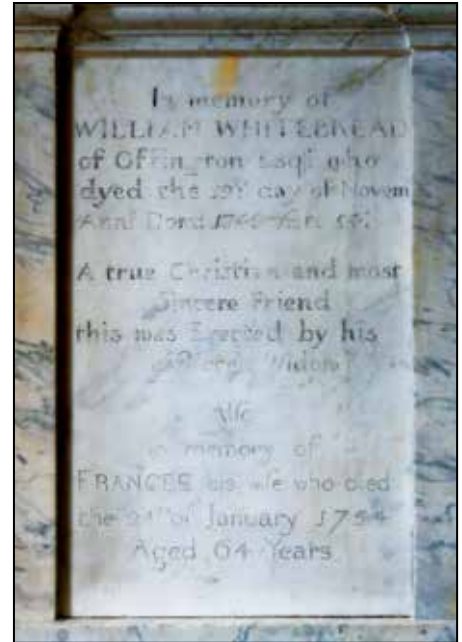 In memory of
WILLIAM WHITEBREAD
of Offington Esqr who
dyed the day of Novem
Anni Dom:
A true Christian and most
Sincere Friend
this was Erected by his
Widow
Also
in memory of
FRANCES his wife who died
the of January 1754
Aged 64 Years